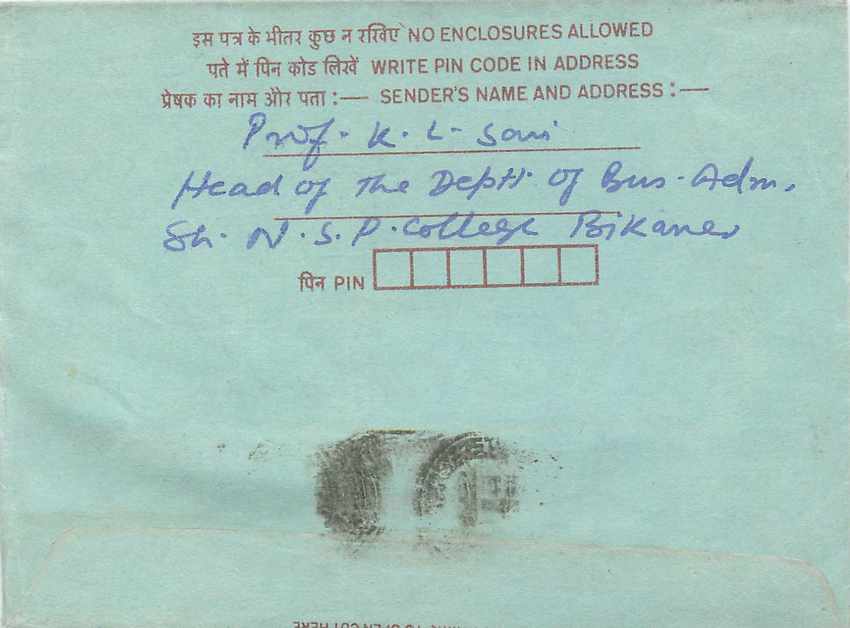 इस पत्र के भीतर कुछ न रखिए NO ENCLOSURES ALLOWED
पते में पिन कोड लिखें WRITE PIN CODE IN ADDRESS
प्रेषक का नाम और पता :— SENDER'S NAME AND ADDRESS :—
Prof. K. L. Soni
Head of The Deptt. of Bus. Adm.
Sh. N. S. P. College Bikaner
पिन PIN
TO OPEN CUT HERE